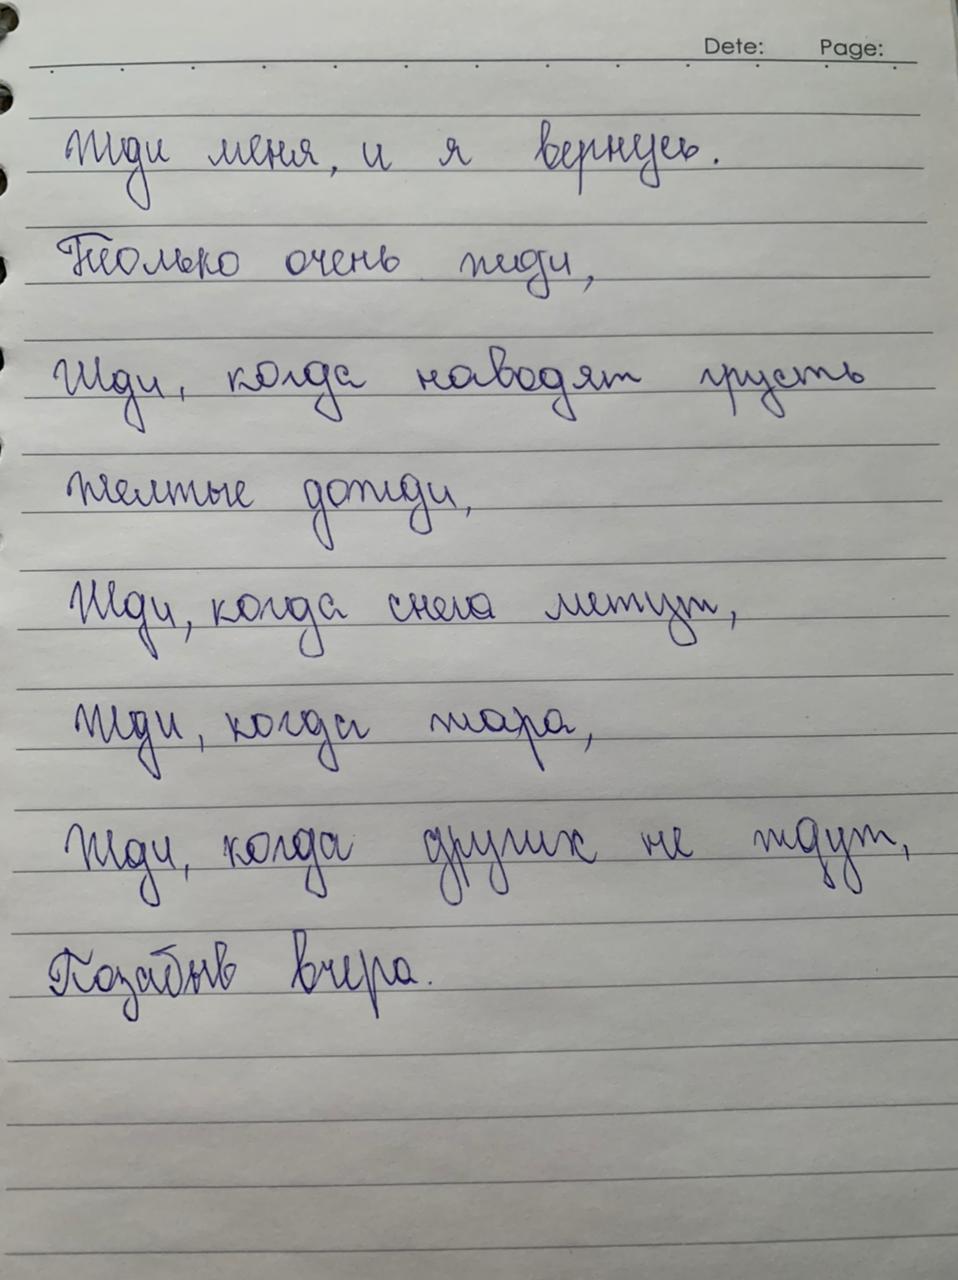 Dete: Page:
Жди меня, и я вернусь.
Только очень жди,
Жди, когда наводят грусть
Желтые дожди,
Жди, когда снега метут,
Жди, когда жара,
Жди, когда других не ждут,
Позабыв вчера.